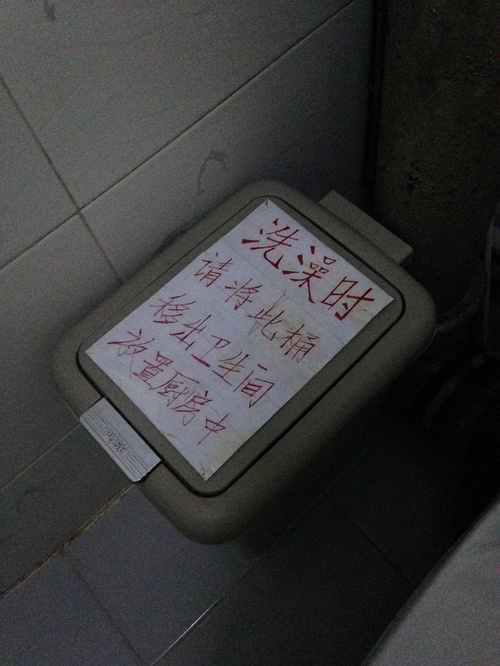 洗澡时
请将此桶
移出卫生间
放置厨房中